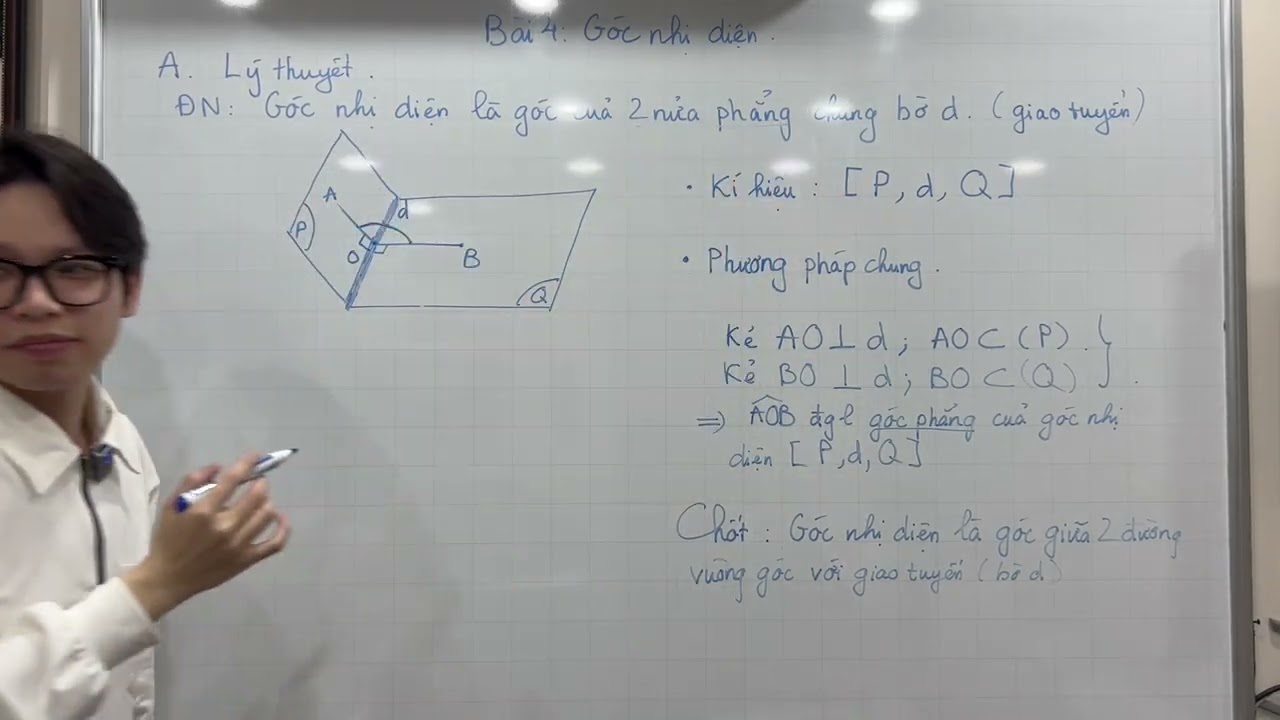 Bài 4: Góc nhị diện.
A. Lý thuyết.
ĐN: Góc nhị diện là góc của 2 nửa phẳng chung bờ d. (giao tuyến)
A
d
P
O
B
Q
• Kí hiệu : [P, d, Q]
• Phương pháp chung.
Kẻ AO ⊥ d ; AO ⊂ (P).
Kẻ BO ⊥ d ; BO ⊂ (Q) .
=> \widehat{AOB} đgl góc phẳng của góc nhị
diện [P, d, Q]
Chốt : Góc nhị diện là góc giữa 2 đường
vuông góc với giao tuyến (bờ d)